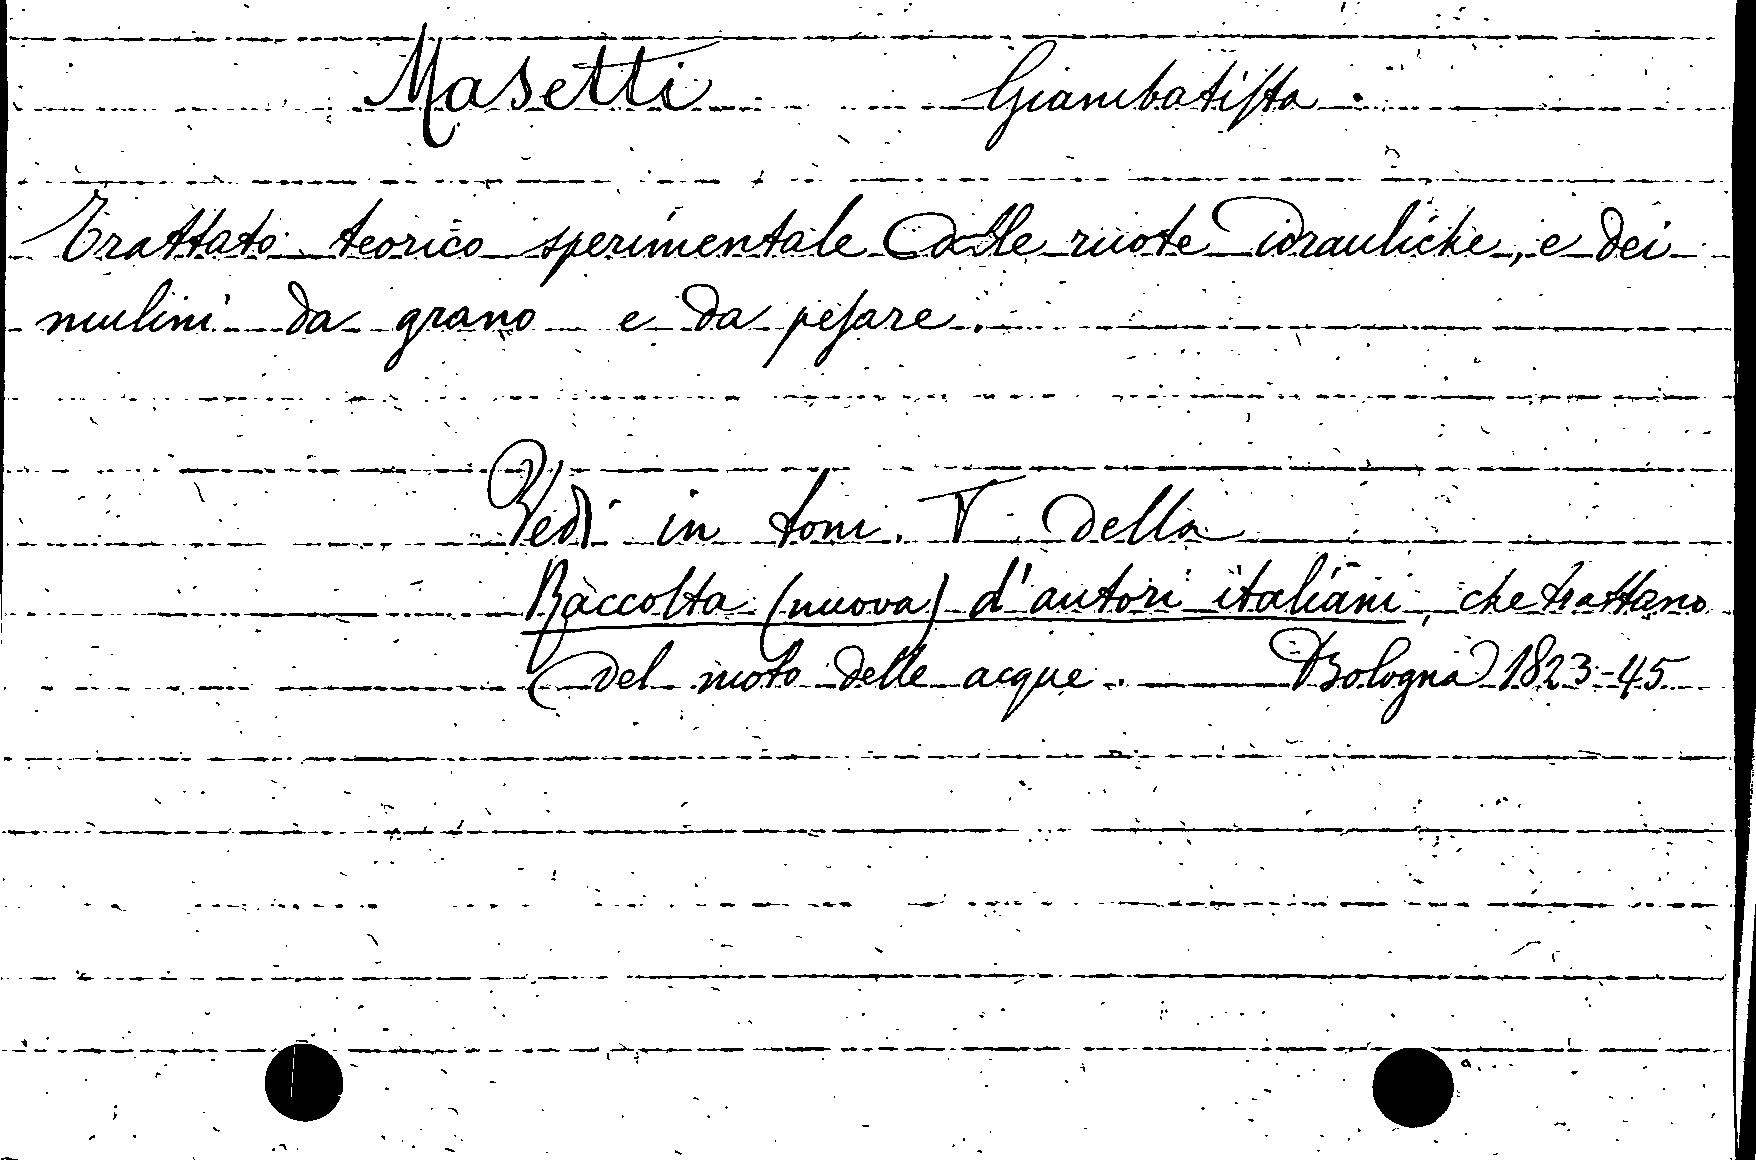 Masetti Giambatista.
Trattato teorico sperimentale delle ruote idrauliche, e dei
mulini da grano e da pesare.
Vedi in tom. V della
Raccolta (nuova) d'autori italiani, che trattano
del moto delle acque. Bologna 1823-45